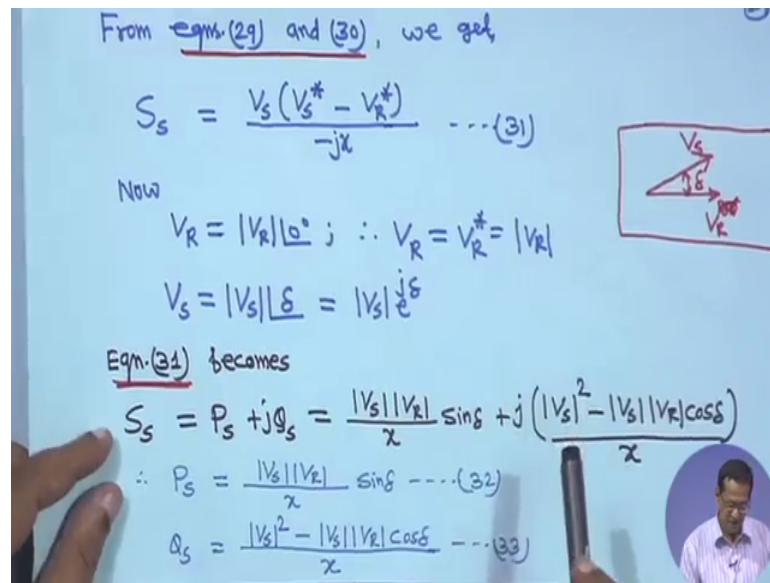 From eqns.(29) and (30), we get,
S_s = V_s (V_s^* - V_R^*) / -jx ----(31)
V_s
δ
V_R
Now
V_R = |V_R|∠0° ; ∴ V_R = V_R^* = |V_R|
V_s = |V_s|∠δ = |V_s| e^{jδ}
Eqn.(31) becomes
S_s = P_s + jQ_s = |V_s||V_R| / x sinδ + j (|V_s|^2 - |V_s||V_R|cosδ) / x
∴ P_s = |V_s||V_R| / x sinδ ----(32)
Q_s = |V_s|^2 - |V_s||V_R|cosδ / x ---(33)